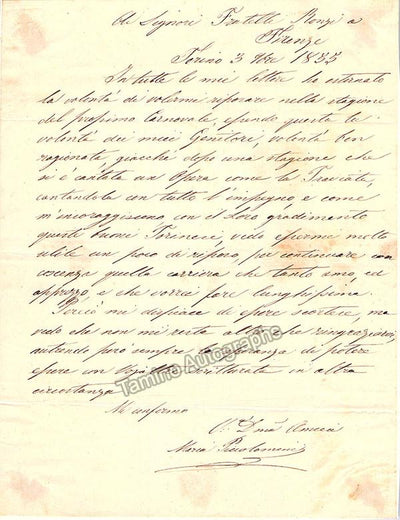 Ai Signori Fratelli Ronzi a
Firenze
Torino 3 9bre 1855
In tutte le mie lettere ho esternato
la volontà di volermi riposare nella stagione
del prossimo carnovale, essendo questa la
volontà dei miei Genitori, volontà ben
ragionata, giacchè dopo una stagione che
si è cantata un Opera come la Traviata,
cantandola con tutto l'impegno, e come
m'incoraggissono con el Loro gradimento
questi buoni Torinesi, vedo essermi molto
utile un poco di riposo, per continuare con
coscenza quella carriera che tanto amo, ed
apprezzo, e che vorrei fare lunghissima.
Perciò mi dispiace di essere scortese, ma
vedo che non mi resta altro che ringraziarvi,
nutrendo però sempre la speranza di potere
essere con scritturata in altra
circostanza
Mi confermo
V. Dma Amica
Maria Piccolomini
Tamino Autographs